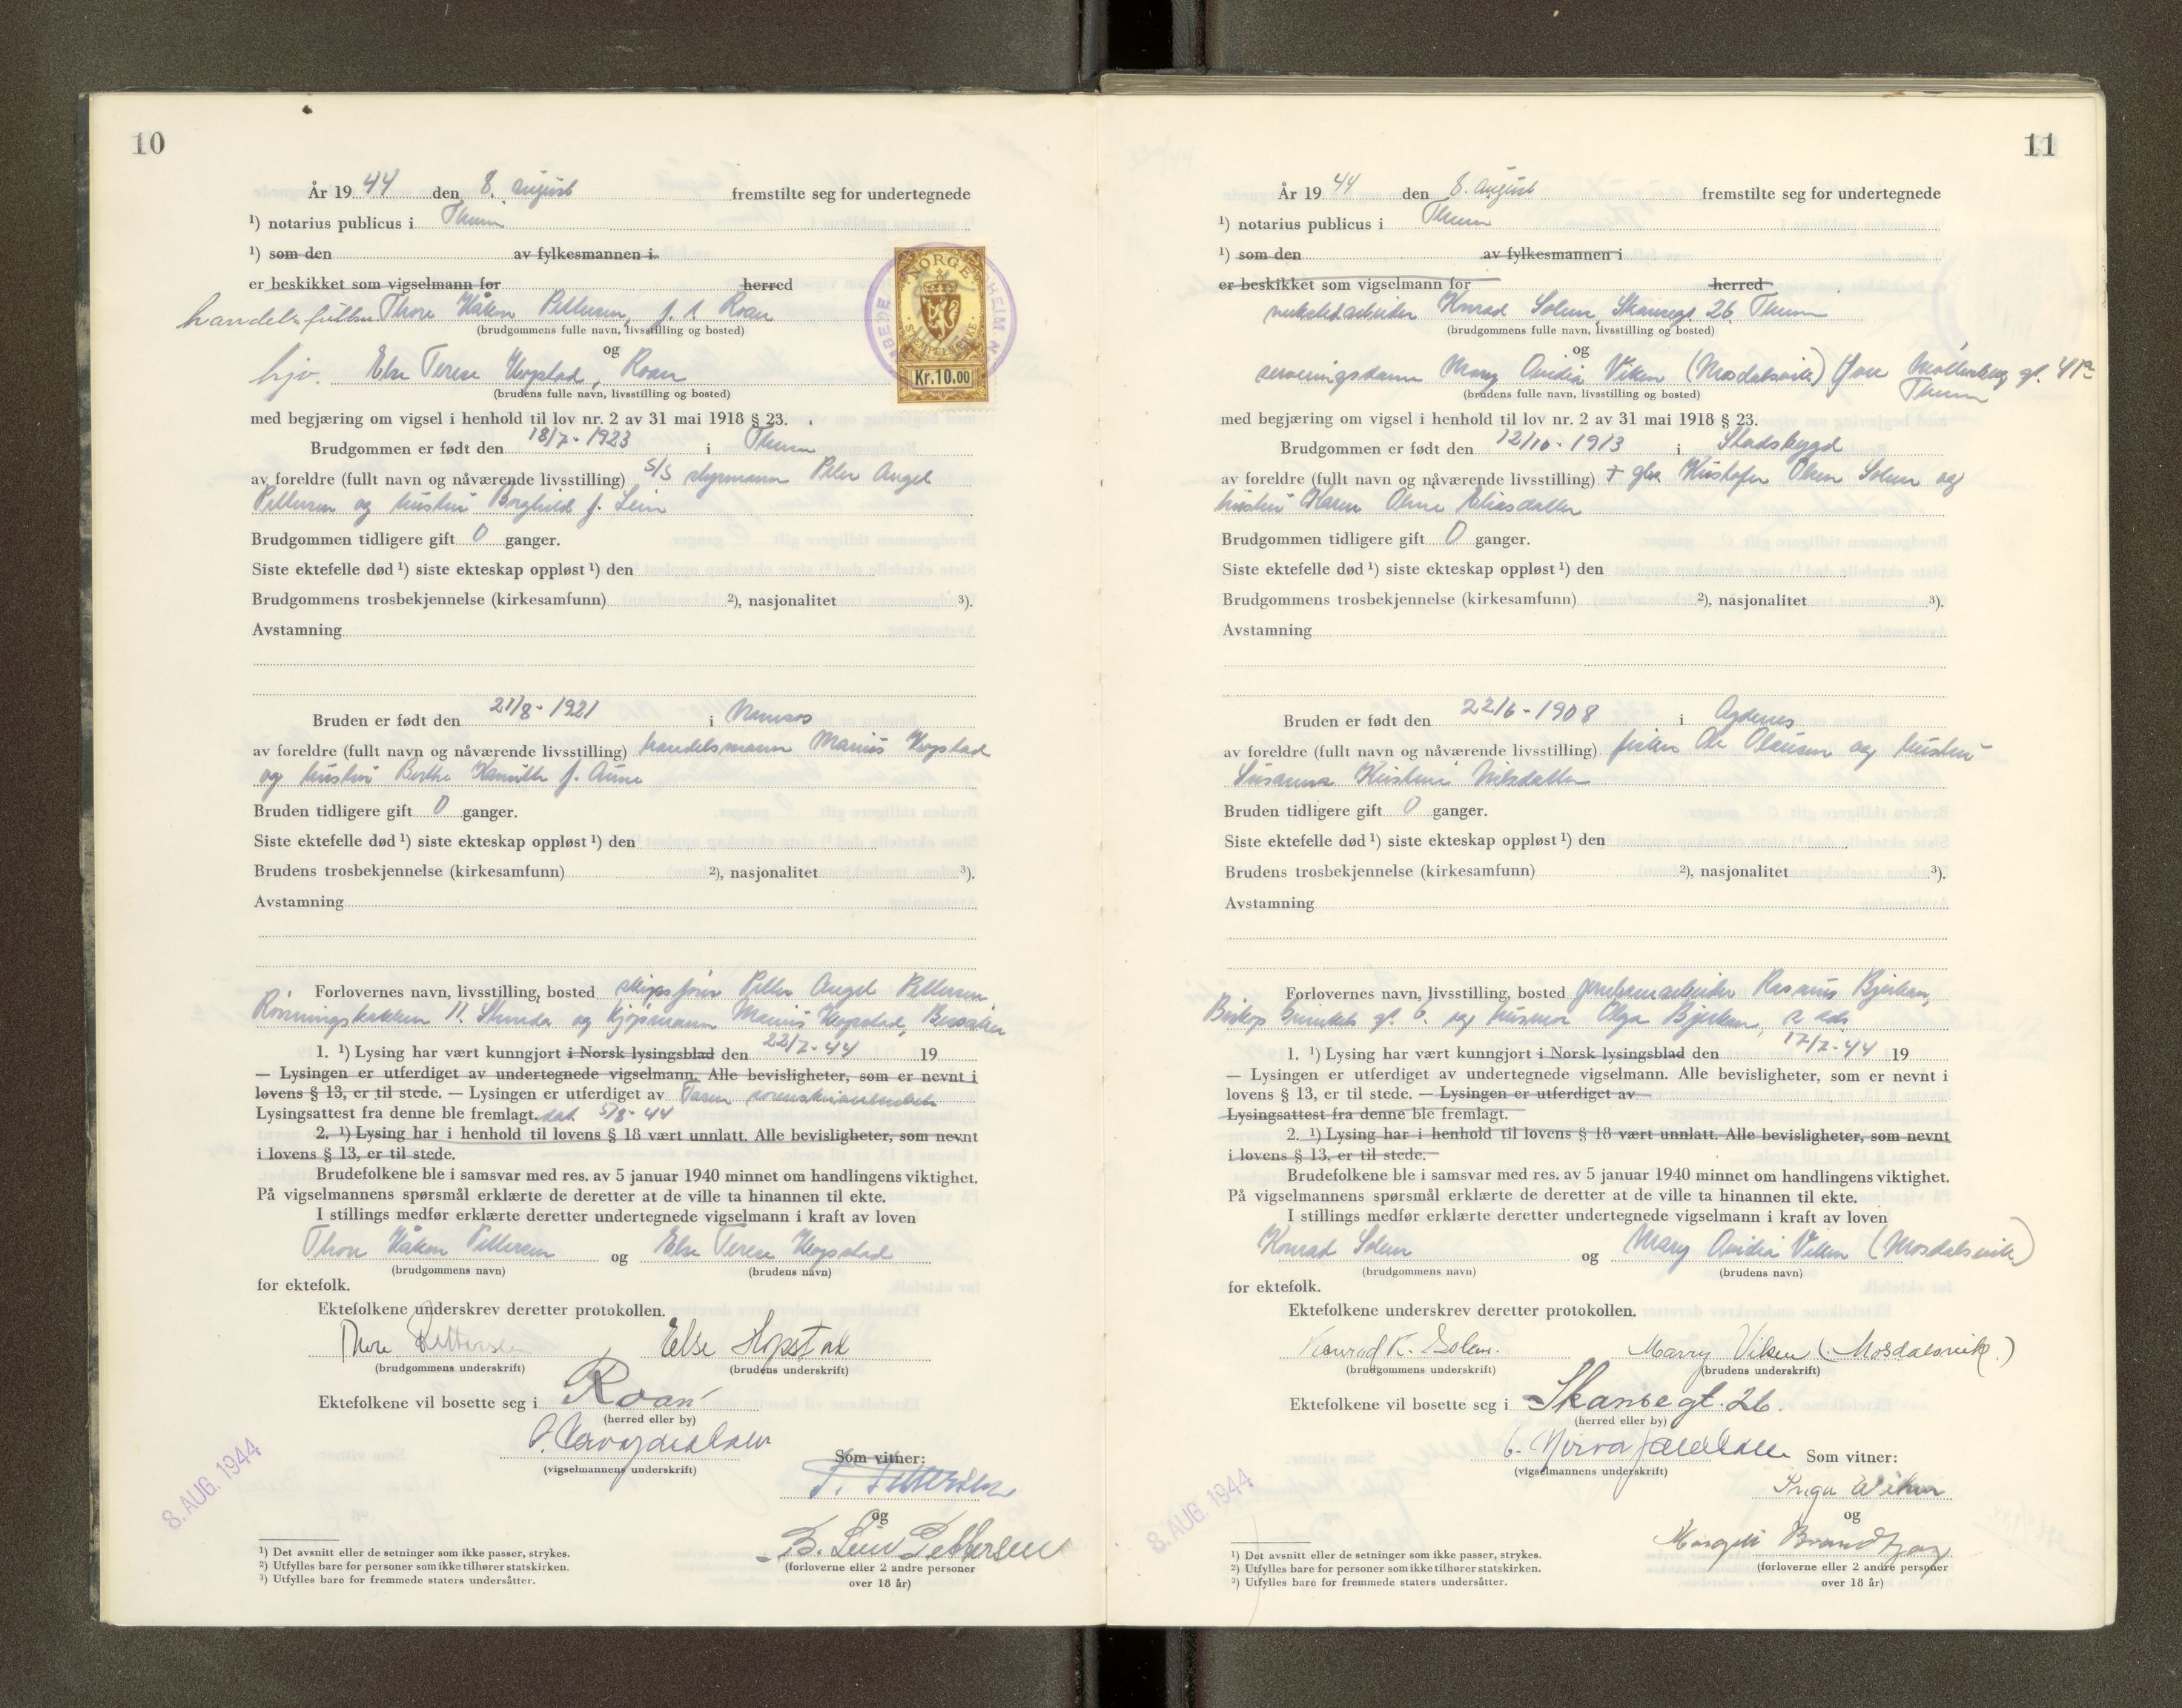 10
År 19 44 den 8. august fremstilte seg for undertegnede
1) notarius publicus i Thm
1) som den av fylkesmannen i
er beskikket som vigselmann for herred
Thore Håkon Pettersen, Roan
(brudgommens fulle navn, livsstilling og bosted)
og
Else Terese Hopstad, Roan
(brudens fulle navn, livsstilling og bosted)
NORGE
STEMPELMERKE
Kr.10.00
med begjæring om vigsel i henhold til lov nr. 2 av 31 mai 1918 § 23.
Brudgommen er født den 18/7 - 1923 i Thm
av foreldre (fullt navn og nåværende livsstilling) S/S styrmann Peter Angel
Pettersen og hustru Borghild f. Lein
Brudgommen tidligere gift 0 ganger.
Siste ektefelle død 1) siste ekteskap oppløst 1) den
Brudgommens trosbekjennelse (kirkesamfunn) 2), nasjonalitet 3).
Avstamning
Bruden er født den 21/8 - 1921 i Namsos
av foreldre (fullt navn og nåværende livsstilling) handelsmann Marius Hopstad
og hustru Berthe f. Aune
Bruden tidligere gift 0 ganger.
Siste ektefelle død 1) siste ekteskap oppløst 1) den
Brudens trosbekjennelse (kirkesamfunn) 2), nasjonalitet 3).
Avstamning
Forlovernes navn, livsstilling, bosted skipsfører Petter Angel Pettersen,
11. Strinda og kjøpmann Marius Hopstad, Bessaker
1. 1) Lysing har vært kunngjort i Norsk lysingsblad den 22/7 - 44 19
— Lysingen er utferdiget av undertegnede vigselmann. Alle bevisligheter, som er nevnt i
lovens § 13, er til stede. — Lysingen er utferdiget av
Lysingsattest fra denne ble fremlagt. dat. 5/8 - 44
2. 1) Lysing har i henhold til lovens § 18 vært unnlatt. Alle bevisligheter, som nevnt
i lovens § 13, er til stede.
Brudefolkene ble i samsvar med res. av 5 januar 1940 minnet om handlingens viktighet.
På vigselmannens spørsmål erklærte de deretter at de ville ta hinannen til ekte.
I stillings medfør erklærte deretter undertegnede vigselmann i kraft av loven
Thore Håkon Pettersen og Else Terese Hopstad
(brudgommens navn) (brudens navn)
for ektefolk.
Ektefolkene underskrev deretter protokollen.
Thore Pettersen Else Hopstad
(brudgommens underskrift) (brudens underskrift)
Ektefolkene vil bosette seg i Roan
(herred eller by)
(vigselmannens underskrift)
Som vitner:
P. Pettersen
og
B. Lein Pettersen
(forloverne eller 2 andre personer
over 18 år)
8. AUG. 1944
1) Det avsnitt eller de setninger som ikke passer, strykes.
2) Utfylles bare for personer som ikke tilhører statskirken.
3) Utfylles bare for fremmede staters undersåtter.
11
År 19 44 den 8. august fremstilte seg for undertegnede
1) notarius publicus i Thm
1) som den av fylkesmannen i
er beskikket som vigselmann for herred
verkstedarbeider Konrad Solem, Skansegt. 26, Thm
(brudgommens fulle navn, livsstilling og bosted)
og
serveringsdame Mary Ovidia Viken (Mosdalsvik) Øvre Møllenberg gt. 41
Thm
(brudens fulle navn, livsstilling og bosted)
med begjæring om vigsel i henhold til lov nr. 2 av 31 mai 1918 § 23.
Brudgommen er født den 12/10 - 1913 i Stadsbygd
av foreldre (fullt navn og nåværende livsstilling) Kristofer Olsen Solem og
hustru Karen Anne Eliasdatter
Brudgommen tidligere gift 0 ganger.
Siste ektefelle død 1) siste ekteskap oppløst 1) den
Brudgommens trosbekjennelse (kirkesamfunn) 2), nasjonalitet 3).
Avstamning
Bruden er født den 22/6 - 1908 i Agdenes
av foreldre (fullt navn og nåværende livsstilling) fisker Ole Olausen og hustru
Susanna Kristine Nilsdatter
Bruden tidligere gift 0 ganger.
Siste ektefelle død 1) siste ekteskap oppløst 1) den
Brudens trosbekjennelse (kirkesamfunn) 2), nasjonalitet 3).
Avstamning
Forlovernes navn, livsstilling, bosted jernbanearbeider Rasmus Bjerkan,
Biskop gt. 6. og husmor Olga Bjerkan,
1. 1) Lysing har vært kunngjort i Norsk lysingsblad den 17/7 - 44 19
— Lysingen er utferdiget av undertegnede vigselmann. Alle bevisligheter, som er nevnt i
lovens § 13, er til stede. — Lysingen er utferdiget av
Lysingsattest fra denne ble fremlagt.
2. 1) Lysing har i henhold til lovens § 18 vært unnlatt. Alle bevisligheter, som nevnt
i lovens § 13, er til stede.
Brudefolkene ble i samsvar med res. av 5 januar 1940 minnet om handlingens viktighet.
På vigselmannens spørsmål erklærte de deretter at de ville ta hinannen til ekte.
I stillings medfør erklærte deretter undertegnede vigselmann i kraft av loven
Konrad Solem og Mary Ovidia Viken (Mosdalsvik)
(brudgommens navn) (brudens navn)
for ektefolk.
Ektefolkene underskrev deretter protokollen.
Konrad K. Solem. Marry Viken (Mosdalsvik.)
(brudgommens underskrift) (brudens underskrift)
Ektefolkene vil bosette seg i Skansegt. 26.
(herred eller by)
(vigselmannens underskrift)
Som vitner:
Inga Viken
og
(forloverne eller 2 andre personer
over 18 år)
8. AUG. 1944
1) Det avsnitt eller de setninger som ikke passer, strykes.
2) Utfylles bare for personer som ikke tilhører statskirken.
3) Utfylles bare for fremmede staters undersåtter.